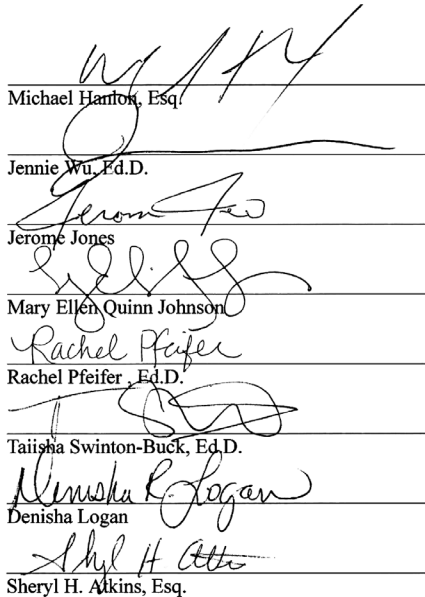 Michael Hanlon, Esq.
Jennie Wu, Ed.D.
Jerome Jones
Mary Ellen Quinn Johnson
Rachel Pfeifer
Rachel Pfeifer , Ed.D.
Taiisha Swinton-Buck, Ed.D.
Denisha R. Logan
Denisha Logan
Sheryl H. Atkins, Esq.